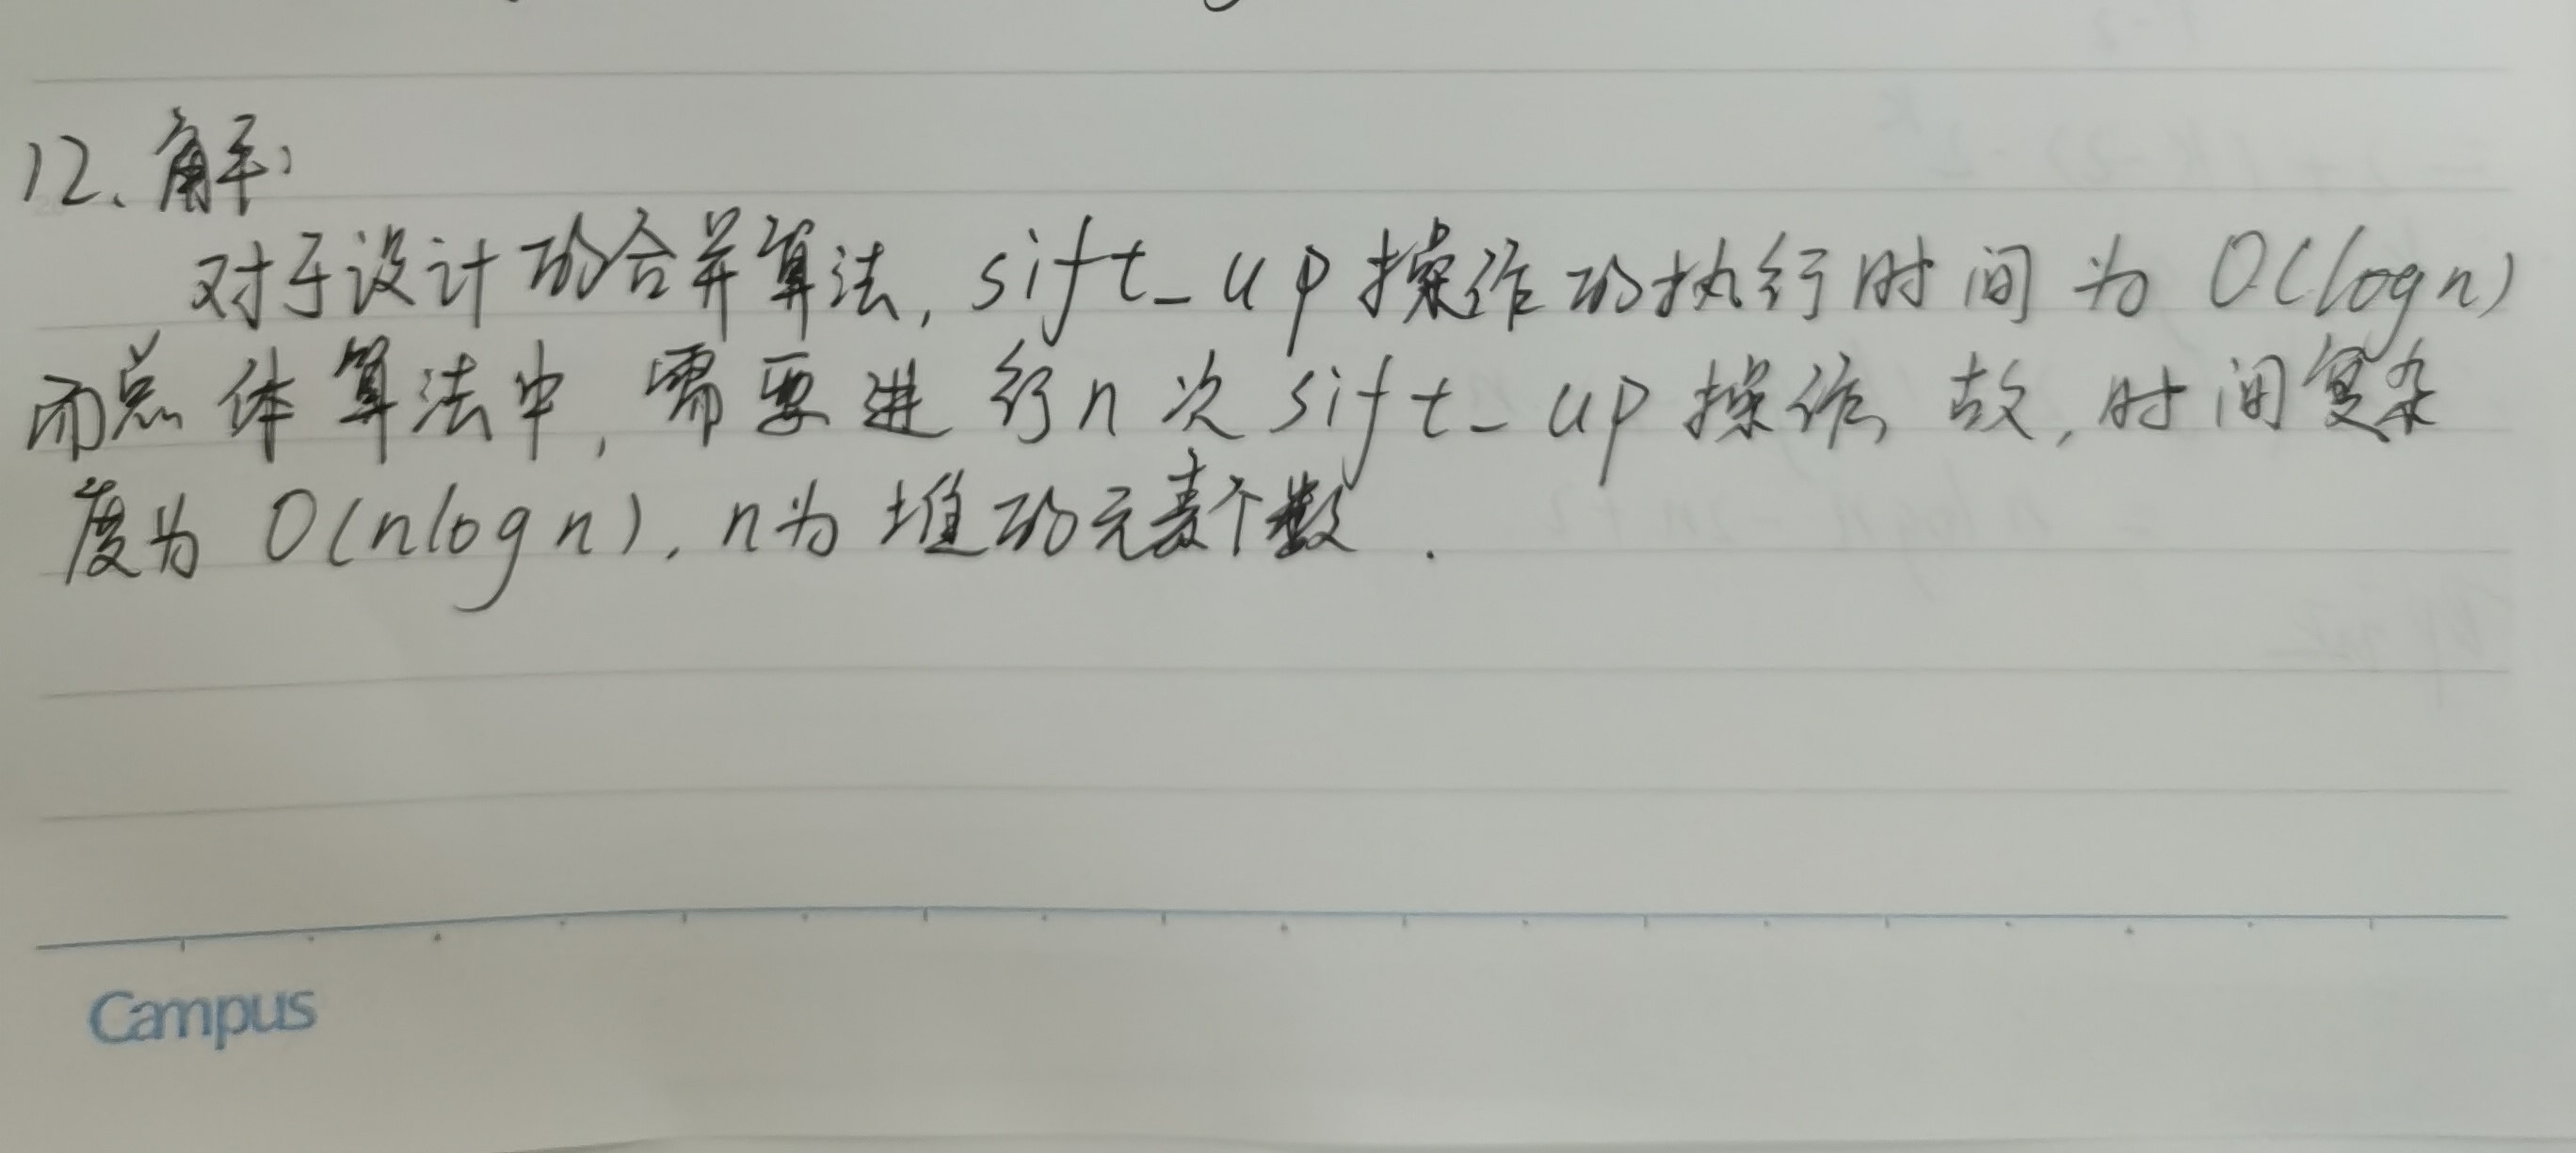 12. 解:
对于设计的合并算法, sift_up操作的执行时间为O(logn)
而总体算法中, 需要进行n次sift_up操作, 故, 时间复杂
度为O(nlogn), n为堆的元素个数.
Campus